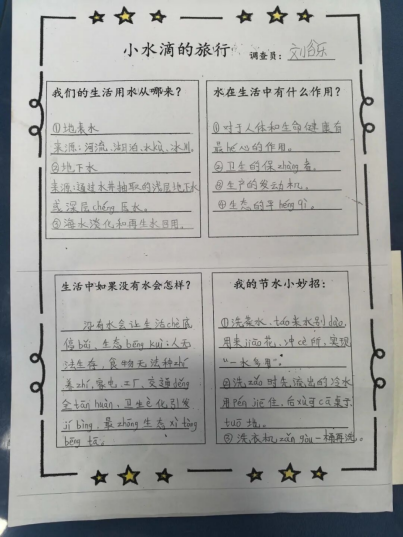 小水滴的旅行 调查员：
我们的生活用水从哪来？
①地表水
来源：河流、湖泊、水kù、冰川。
②地下水
来源：通过水井抽取的浅层地下水
或深层chéng压水。
③海水淡化和再生水回用。
水在生活中有什么作用？
①对于人体和生命健康有
最 的作用。
②卫生的保zhàng者。
③生产的发动机。
④生态的平héng。
生活中如果没有水会怎样？
没有水会让生活chè底
停bǎi，生态bēng kuì：人无
法生存，食物无法种zhí
养zhí，家电、工厂、交通
全tān huàn，卫生 化引发
jí bìng，最zhōng生态xì tǒng
bēng tā。
我的节水小妙招：
①洗菜水、táo米水别dào，
用来jiāo花、冲cè所，实现
“一水多用”。
②洗zǎo时先流出的冷水
用pén jiē住，后xù可 于
tuō地。
③洗衣机zǎn gòu一桶再洗。